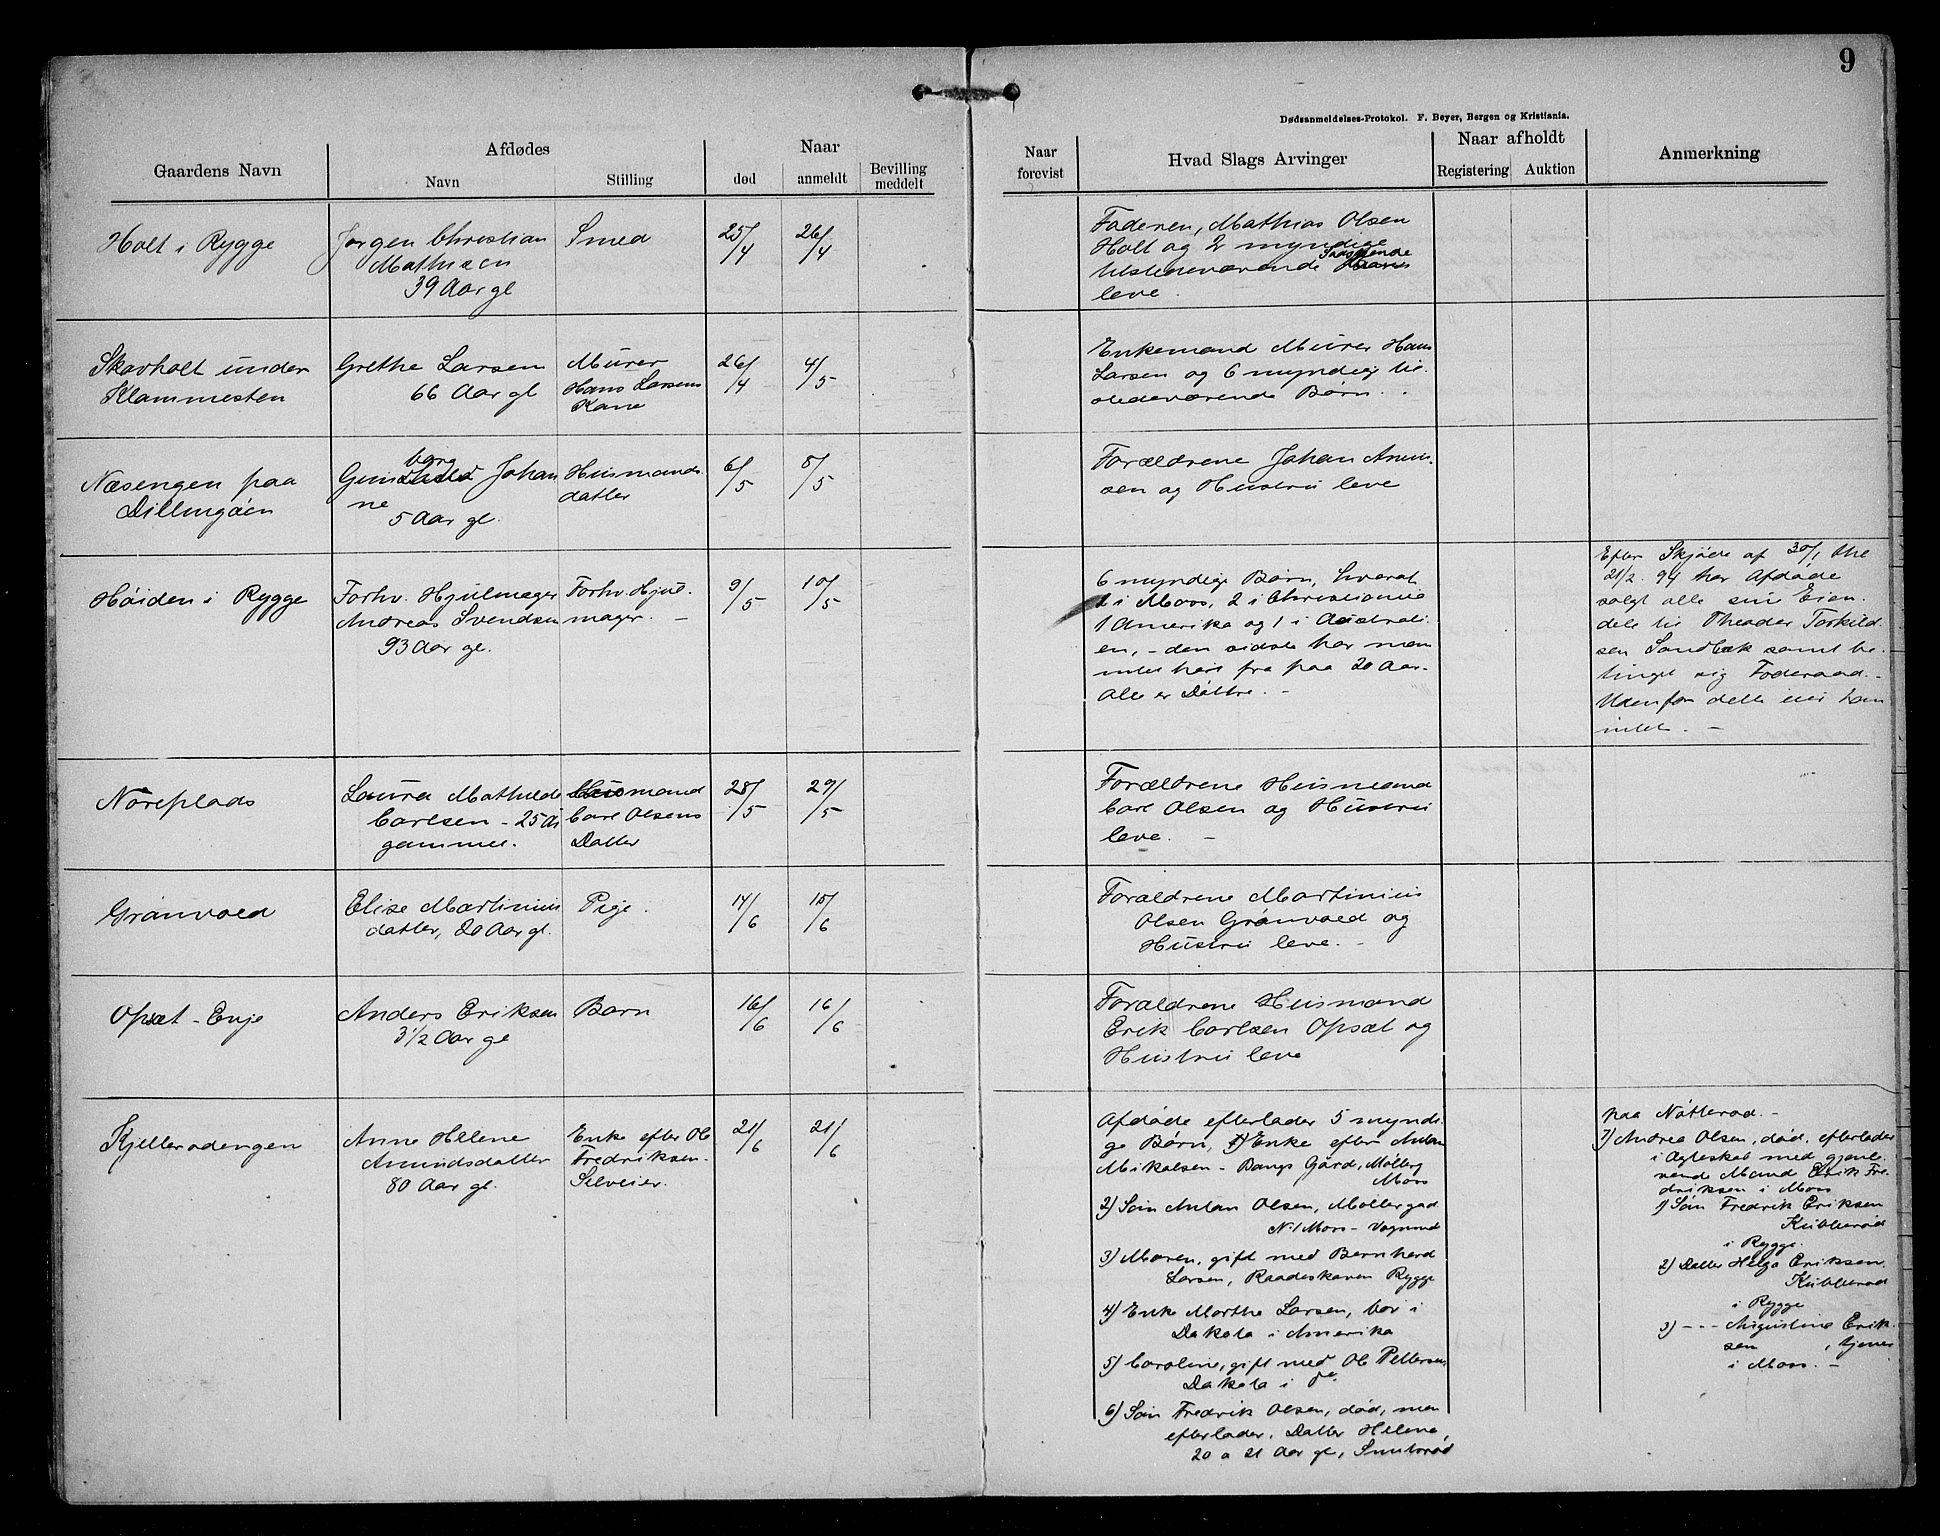 9
Dødsanmeldelses-Protokol. F. Beyer, Bergen og Kristiania.
Gaardens Navn
Afdødes
Navn
Stilling
Naar
død
anmeldt
Bevilling meddelt
Naar forevist
Hvad Slags Arvinger
Naar afholdt
Registering
Auktion
Anmerkning
Holt i Rygge
Jørgen Christian
Mathisen
39 Aar gl
Smed
25/4
26/4
Faderen, Mathias Olsen
Holt og 2 myndige
tilstedeværende Sødskende
leve.
Skovholt under
Klommesten
Grethe Larsen
66 Aar gl
Murer
Hans Larsens
Kone
26/4
4/5
Enkemand Murer Hans
Larsen og 6 myndig til
stedeværende Børn.
Næsengen paa
Dillingöen
Gunborg Johan
ne
5 Aar gl.
Husmands
datter
6/5
8/5
Forældrene Johan
sen og Hustru leve
Höiden i Rygge
Forhv. Hjulmager
Andreas Svendsen
93 Aar gl.
Forhv. Hjul
mager. -
9/5
10/5
6 myndige Børn, hvoraf
2 i Moss, 2 i Christiania
1 Amerika og 1 i Australi
en, - den sidste har man
intet hørt fra paa 20 Aar.
Alle er Døttre. -
Efter Skjöde af 30/1 thl
21/2. 94 har Afdøde
solgt alle sine Eien.
dele til Theodor Torkild
sen Sandbæk samt be.
tinget sig Föderaad. -
Udenfor dette eier han
intet. -
Nöreplads
Laura Mathilde
Carlsen - 25 Aar
gammel.
Husmand
Carl Olsens
Datter
28/5
29/5
Forældrene Husmand
Carl Olsen og Hustru
leve. -
Grönvold
Elise Martinius
datter, 20 Aar gl.
Pige.
14/6
15/6
Forældrene Martinius
Olsen Grönvold og
Hustru leve. -
Opsæt - Enje
Anders Eriksen
3 1/2 Aar gl
Barn
16/6
16/6
Forældrene Husmand
Erik Carlsen Opsæt og
Hustru leve
Kjellerødengen
Anne Helene
Amundsdatter
80 Aar gl.
Enke efter Ole
Fredriksen.
Selveier.
21/6
21/6
Afdøde efterlader 5 myndi
ge Børn, 1) Enke efter Anton
Mikalsen - Bangs Gård, Mølleg
Moss
2) Sön Anton Olsen, Møllergad
N. 1 Moss - Vognmd
3) Maren, gift med Bernhard
Larsen, Raadeskoven Rygge
4) Enke Marthe Larsen, bor i
Dakota i Amerika
5) Caroline, gift med Ole Pettersen
Dakota i do
6) Sön Fredrik Olsen, död, men
efterlader, Datter Helene,
20 a 21 Aar gl,
paa Nøtterød. -
7) Andrea Olsen, död, efterlader
i Ægteskab med gjenle.
vende Mand Erik Fre
driksen i Moss
1) Sön Fredrik Eriksen
Kubberød
i Rygge.
2) Datter Helga Eriksen
Kubberød
i Rygge
3) - - - Augustine Erik
sen, tjener
i Moss. -